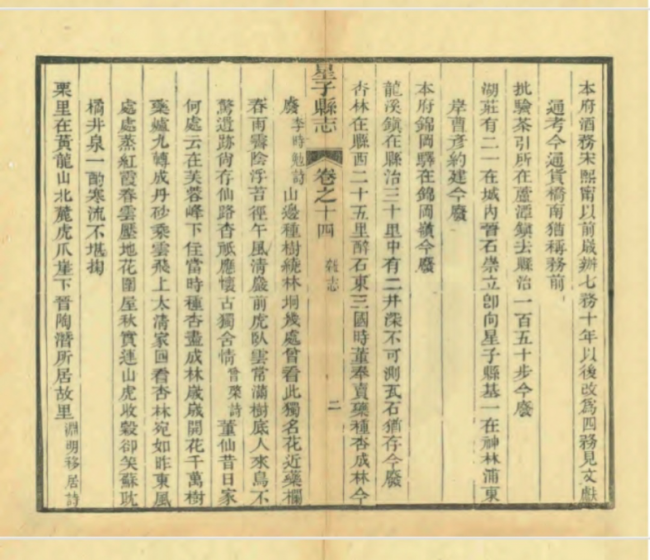 本府酒務宋熙甯以前歲辦七務十年以後改爲四務見文獻
通考今通貨橋南猶稱務前
批驗茶引所在蘆潭鎮去縣治一百五十步今廢
湖莊有二一在城內晉石崇立卽向星子縣基一在神林浦東
岸曹彥約建今廢
本府錦岡驛在錦岡嶺今廢
龍溪鎮在縣治三十里中有二井深不可測瓦石猶存今廢
杏林在縣西二十五里醉石東三國時董奉賣藥種杏成林今
廢李時勉詩山邊種樹繞林垌幾處曾看此獨名花近藥欄
星子縣志 卷之十四 雜志 二
春雨霽陰浮苔徑午風清巖前虎臥雲常滿樹底人來鳥不
驚遺跡尙存仙路杳祇應懷古獨含情曾棨詩董仙昔日家
何處云在芙蓉峰下住當時種杏盡成林歲歲開花千萬樹
藥爐九轉成丹砂乘雲飛上太清家回看杏林宛如昨東風
處處蒸紅霞春雲壓地花圍屋秋實連山虎收穀卻笑蘇耽
橘井泉一酌寒流不堪掬
栗里在黃龍山北麓虎爪崖下晉陶潛所居故里淵明移居詩